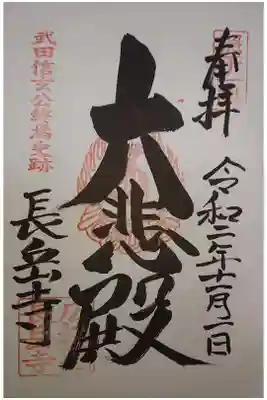 奉拝
令和二年十一月一日
大悲殿
武田信玄公終焉史跡
長岳寺